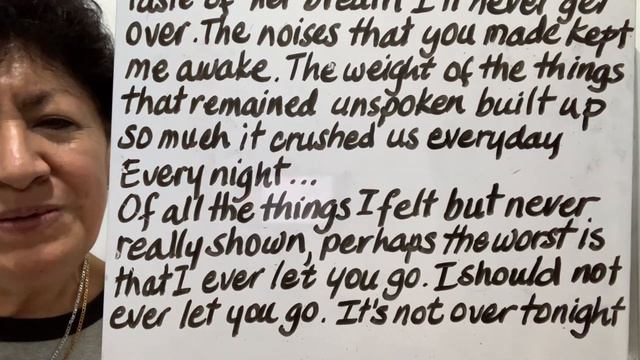 taste of her breath I'll never get
over. The noises that you made kept
me awake. The weight of the things
that remained unspoken built up
so much it crushed us everyday
Every night...
Of all the things I felt but never
really shown, perhaps the worst is
that I ever let you go. I should not
ever let you go. It's not over tonight